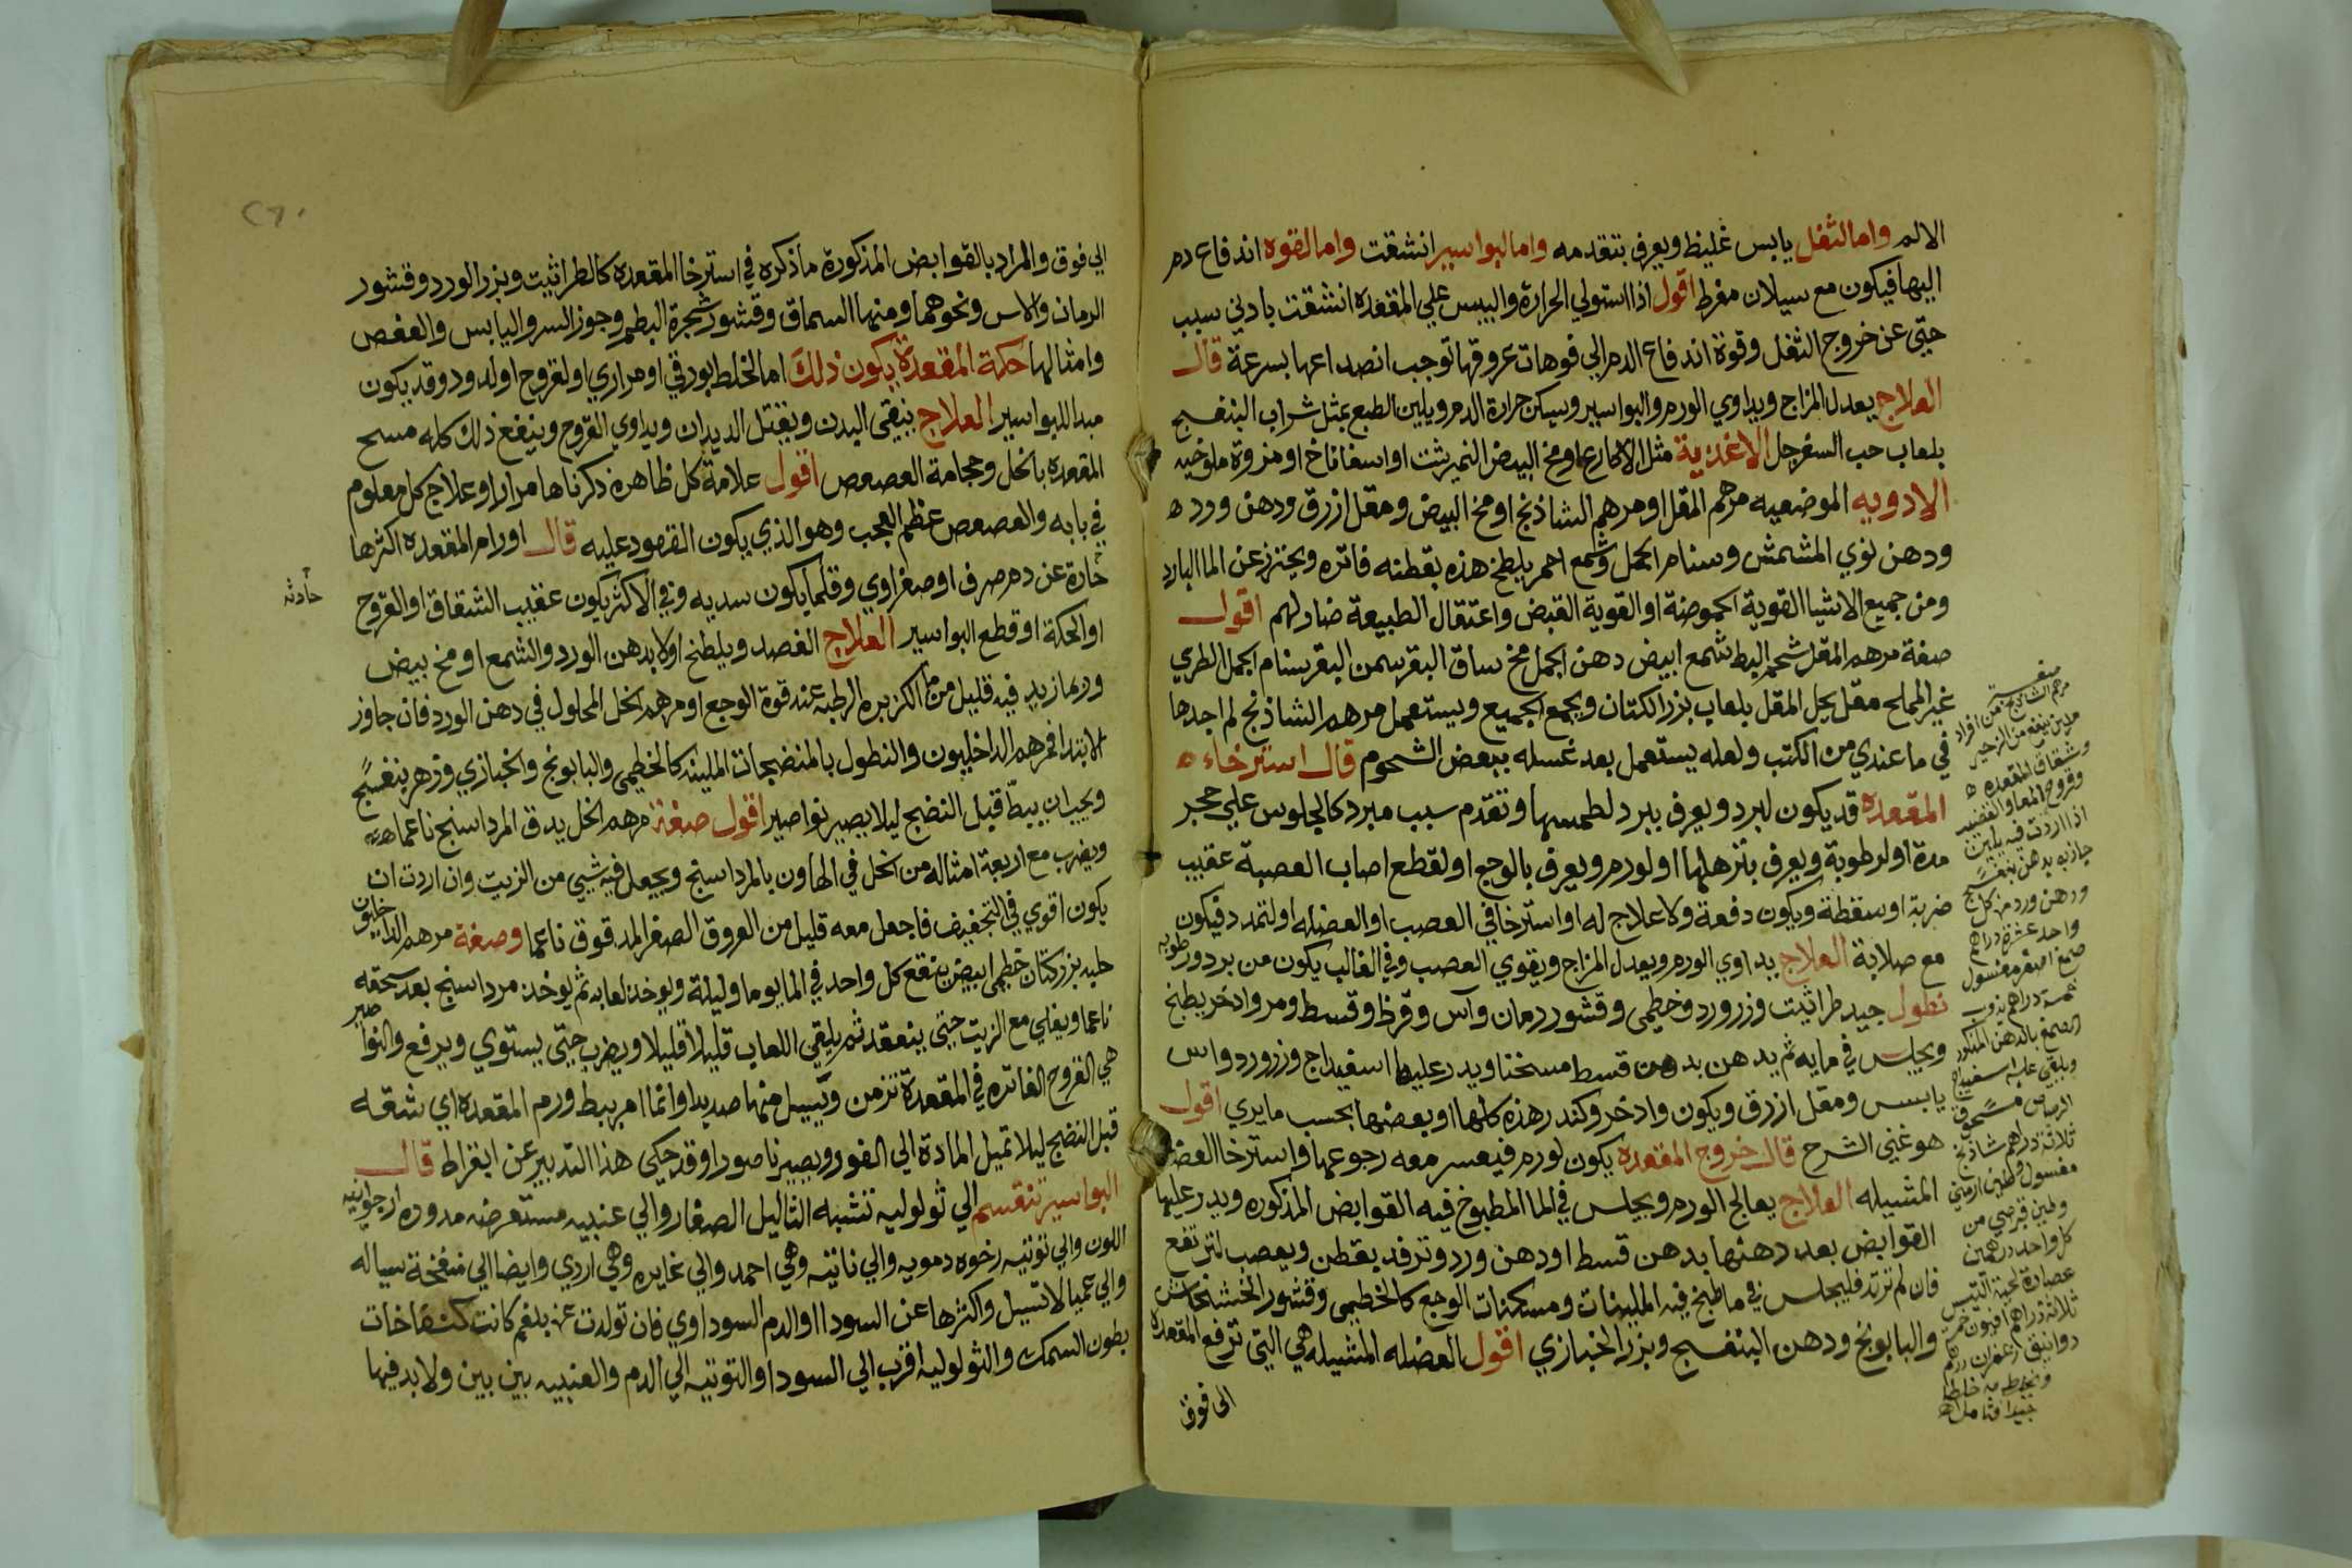 الالم واما لثفل يابس غليظ ويعرف بتقدمه واما لبواسير انشقت واما لقوه اندفاع دم
اليها فيكون مع سيلان مفرط اقول اذا استولي الحرارة واليبس علي المقعدة انشقت بادني سبب
حتى عن خروج الثفل وقوة اندفاع الدم الي فوهات عروقها توجب انصداعها بسرعة قال
العلاج يعدل المزاج ويداوي الورم والبواسير ويسكن حرارة الدم ويلين الطبع بمثل شراب البنفسج
بلعاب حب السفرجل الاغذية مثل الاكارع او مخ البيض النمرشت او اسفاناخ او مزورة ملوخيه
الادويه الموضعيه مرهم المقل او مرهم الشاذنج او مخ البيض ومقل ازرق ودهن ورد
ودهن نوي المشمش وسنام الجمل وشمع احمر يلطخ هذه بقطنه فاتره ويحترز عن الما البارد
ومن جميع الاشيا القوية الحموضة او القوية القبض واعتقال الطبيعة ضار لهم اقول
صفة مرهم المقل شحم البط شمع ابيض دهن الجمل مخ ساق البقر سمن البقر سنام الجمل الطري
غير المملح مقل يحل المقل بلعاب بزر الكتان ويجمع الجميع ويستعمل مرهم الشاذنج لم اجدها
في ما عندي من الكتب ولعله يستعمل بعد غسله ببعض الشحوم قال استرخاء
المقعده قد يكون لبرد ويعرف ببرد لطمسها وتقدم سبب مبرد كالجلوس علي حجر
مدة او لرطوبة ويعرف بترهلها او لورم ويعرف بالوجع او لقطع اصاب العصبة عقيب
ضربة او سقطة ويكون دفعة ولا علاج له او استرخا في العصب او العضله او لتمدد فيكون
مع صلابة العلاج يداوي الورم ويعدل المزاج ويقوي العصب وفي الغالب يكون من برد ورطوبه
نطول جيد طراثيث وزرورد وخطمي وقشور رمان وآس وقرظ وقسط ومر واذخر يطبخ
ويجلس في مايه ثم يدهن بدهن قسط مسخنا ويدر عليها اسفيداج وزرورد واس
يابس ومقل ازرق ويكون واذخر وكندر هذه كلها او بعضها بحسب ما يري اقول
هو غني الشرح قال خروج المقعده يكون لورم فيعسر معه رجوعها واسترخا العضله
المشيله العلاج يعالج الورم ويجلس في الما المطبوخ فيه القوابض المذكوره ويدر عليها
القوابض بعد دهنها بدهن قسط او دهن ورد وترفد بقطن ويعصب لترتفع
فان لم ترتد فليجلس في ما طبخ فيه الملينات ومسكنات الوجع كالخطمي وقشور الخشخاش
والبابونج ودهن البنفسج وبزر الخبازي اقول العضله المشيله هي التي ترفع المقعدة
الى فوق
مرهم الشاذنج من
ينفع من الزحير
وشقاق المقعده
وقروح المعا والقضيب
اذا اردت فيه تليين
بدهن بنفسج
ودهن ورد من كل
واحد عشرة دراهم
صمغ اصفر مغسول
خمسة دراهم يذوب
الصمغ بالدهن المذكور
ويلقي عليه اسفيداج
الرصاص مسحوق
ثلاثة دراهم شاذنج
مغسول وطين ارمني
وطين قبرصي من
كل واحد درهمين
عصارة لحية التيس
ثلاثة دراهم افيون خمسة
دوانيق زعفران درهم
ويخلط به خلطا
جيدا
الي فوق والمراد بالقوابض المذكورة ما ذكره في استرخا المقعده كالطراثيث وبزر الورد وقشور
الرمان والاس ونحوهما ومنها السماق وقشور شجرة البطم وجوز السرو اليابس والعفص
وامثالها حكة المقعدة يكون ذلك اما لخلط بورقي او مراري او لقروح او لدود وقد يكون
مبدا للبواسير العلاج ينقى البدن ويقتل الديدان ويداوي القروح وينفع ذلك كله مسح
المقعده بالخل وحجامة العصعص اقول علامة كل ظاهرة ذكرناها مرارا وعلاج كل معلوم
في بابه والعصعص عظم العجب وهو الذي يكون القعود عليه قال اورام المقعده اكثرها
حادة عن دم صرف او صفراوي وقلما يكون سديه وفي الاكثر يكون عقيب الشقاق او القروح
حادثه
او الحكة او قطع البواسير العلاج الفصد ويلطخ اولا بدهن الورد والشمع او مخ بيض
وربما زيد فيه قليل من ما الكزبره الرطبه عند قوة الوجع او مرهم الخل المحلول في دهن الورد فان جاوز
الابتدا فمرهم الداخليون والنطول بالمنضجات الملينه كالخطمي والبابونج والخبازي وزهر بنفسج
ويجب ان يبط قبل النضج ليلا يصير نواصير اقول صفة مرهم الخل يدق المرداسنج ناعما
ويضرب مع اربعة امثاله من الخل في الهاون بالمرداسنج ويجعل فيه شيي من الزيت وان اردت ان
يكون اقوي في التجفيف فاجعل معه قليل من العروق الصفر المدقوق ناعما وصفة مرهم الداخليون
حلبه بزر كتان خطمي ابيض ينقع كل واحد في الما يوما وليلة ويوخذ لعابه ثم يوخذ مرداسنج بعد سحقه
ناعما ويغلي مع الزيت حتى ينعقد ثم يلقي اللعاب قليلا قليلا ويضرب حتى يستوي ويرفع والنواصير
هي القروح الغائره في المقعدة تزمن ويسيل منها صديد وانما امر ببط ورم المقعدة اي شقه
قبل النضج ليلا تميل المادة الي الغور ويصير ناصورا وقد حكي هذا التدبير عن ابقراط قال
البواسير تنقسم الي ثولوليه تشبه الثاليل الصغار والي عنبيه مستعرضه مدوره ارجوانيه
اللون والي توتيه رخوه دمويه والي ناتيه وهي احمد والي غايره وهي اردي وايضا الي منفخة سياله
والي عميا لا تسيل واكثرها عن السودا او الدم السوداوي فان تولدت عن بلغم كانت كنفاخات
بطون السمك والثولوليه اقرب الي السودا والتوتيه الي الدم والعنبيه بين بين ولا بد فيها